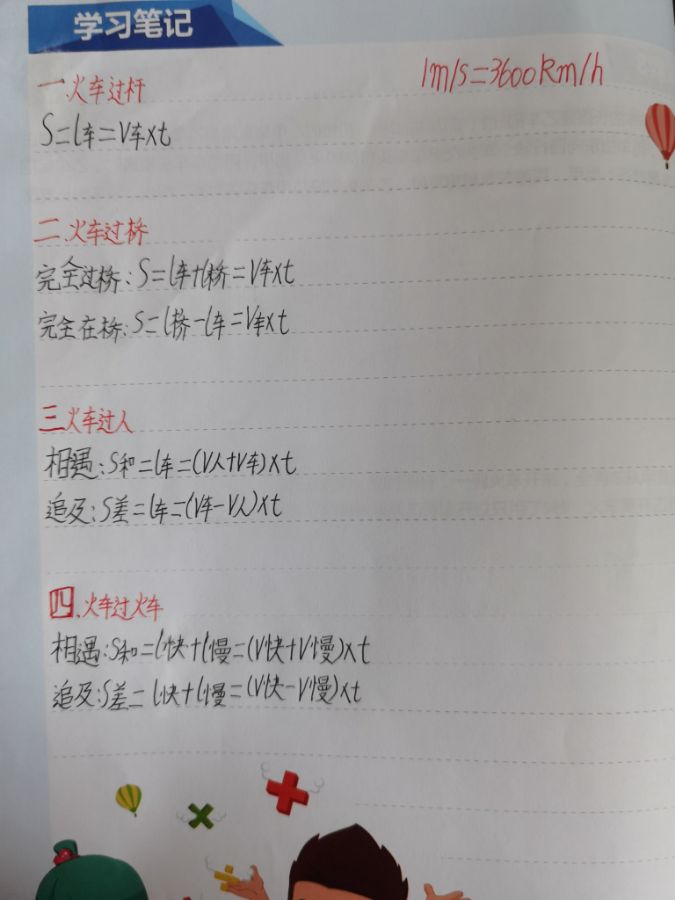 学习笔记
1m/s=3600km/h
一火车过杆
S=l车=V车×t
二.火车过桥
完全过桥:S=l车+l桥=V车×t
完全在桥:S=l桥-l车=V车×t
三火车过人
相遇:S和=l车=(V人+V车)×t
追及:S差=l车=(V车-V人)×t
四.火车过火车
相遇:S和=l快+l慢=(V快+V慢)×t
追及:S差=l快+l慢=(V快-V慢)×t